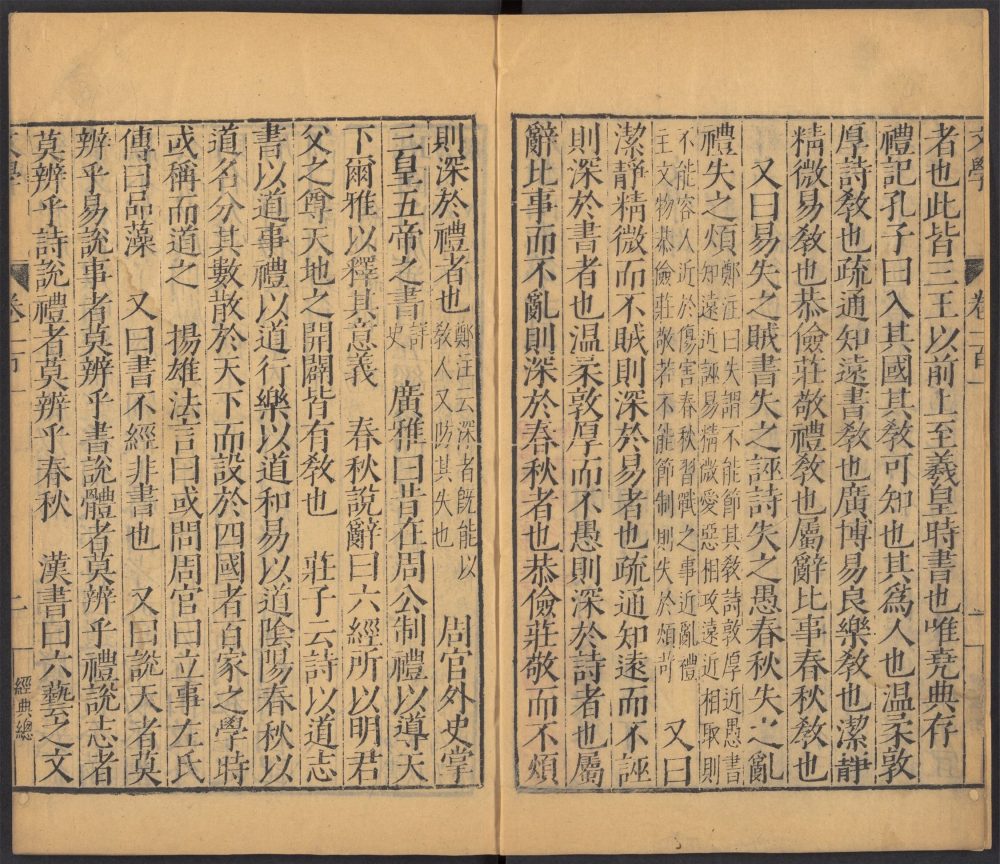 文學
卷一百一
者也此皆三王以前上至羲皇時書也唯堯典存
禮記孔子曰入其國其教可知也其爲人也溫柔敦
厚詩教也疏通知遠書教也廣博易良樂教也潔靜
精微易教也恭儉莊敬禮教也屬辭比事春秋教也
又曰易失之賊書失之誣詩失之愚春秋失之亂
禮失之煩鄭注曰失謂不能節其教詩敦厚近愚書
知遠近誣易精微愛惡相攻遠近相取則
不能容人近於傷害春秋習戰之事近亂禮
主文物恭儉莊敬若不能節制則失於煩苛
又曰
潔靜精微而不賊則深於易者也疏通知遠而不誣
則深於書者也溫柔敦厚而不愚則深於詩者也屬
辭比事而不亂則深於春秋者也恭儉莊敬而不煩
則深於禮者也鄭注云深者旣能以
教人又防其失也
周官外史掌
三皇五帝之書詳
史
廣雅曰昔在周公制禮以導天
下爾雅以釋其意義 春秋說辭曰六經所以明君
父之尊天地之開闢皆有教也 莊子云詩以道志
書以道事禮以道行樂以道和易以道陰陽春秋以
道名分其數散於天下而設於四國者百家之學時
或稱而道之 揚雄法言曰或問周官曰立事左氏
傳曰品藻 又曰書不經非書也 又曰說天者莫
辨乎易說事者莫辨乎書說體者莫辨乎禮說志者
莫辨乎詩說禮者莫辨乎春秋 漢書曰六藝之文
文學
卷一百一
二
經典總